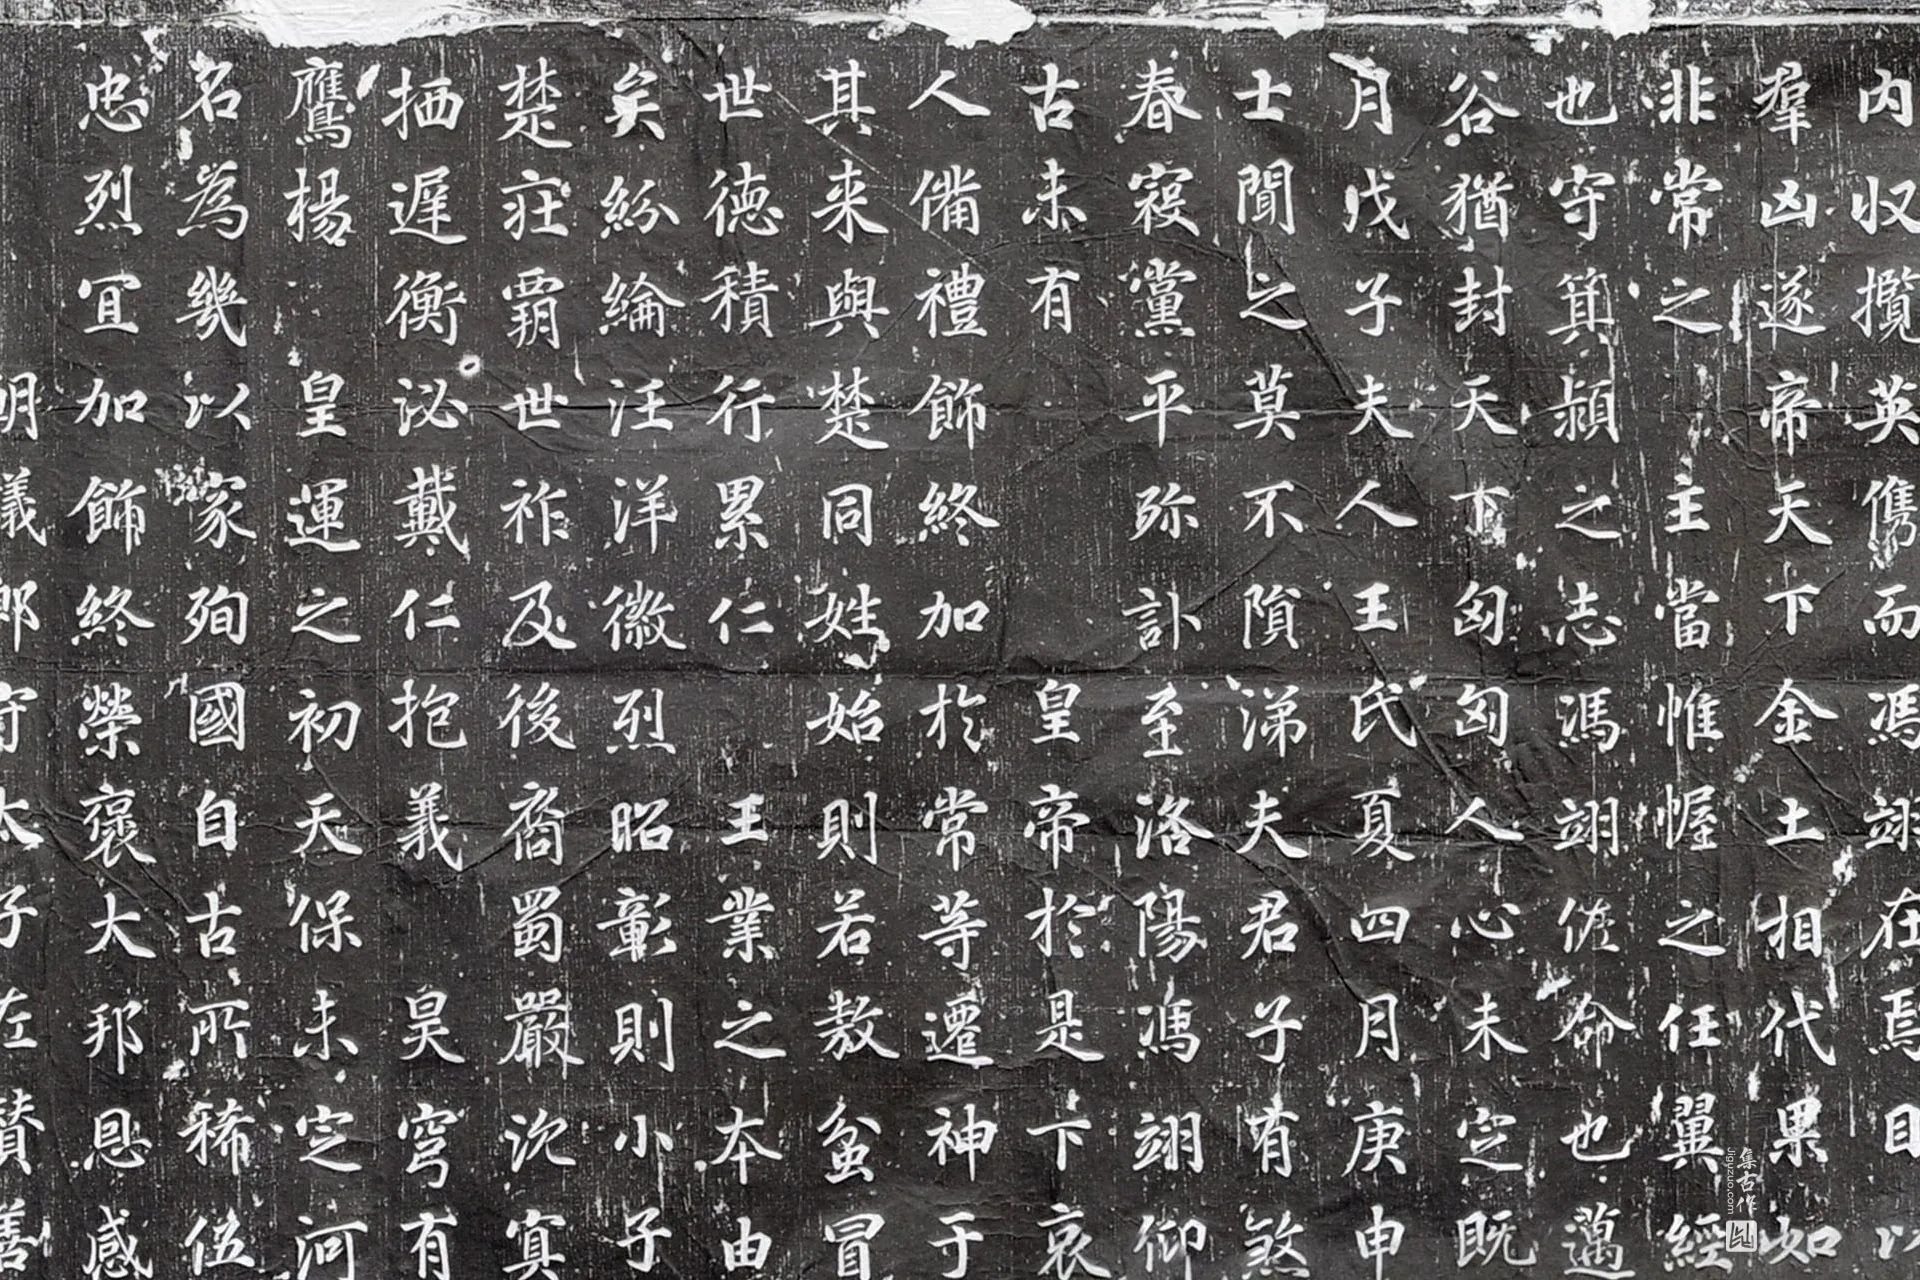 内收攬英儁而馮翊在焉日以
羣凶遂帝天下金土相代果如
非常之主當惟幄之任翼經
也守箕潁之志馮翊佐命也蕅
谷猶封天下匈匈人心未定既
月戊子夫人王氏夏四月庚申
士聞之莫不隕涕夫君子有煞
春寢黨平弥訃至洛陽馮翊仰
古未有皇帝於是卞哀
人備禮飾終加於常等遷神于
其来與楚同姓始則若敖蚠冒
世德積行累仁王業之本由
矣紛綸汪洋徽烈昭彰則小子
楚莊霸世祚及後裔蜀嚴沈㝠
栖遲衡泌戴仁抱義昊穹有
鷹楊皇運之初天保未定河
名為幾以家殉國自古所稀伍
忠烈宜加飾終榮褒大邦恩感
朗議郎守太子左贊善
集古作
Jiguzuo.com